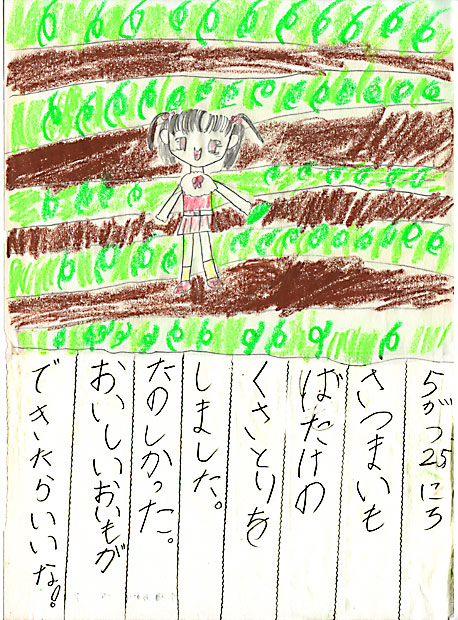 5がつ25にち
さつまいも
ばたけの
くさとりを
しました。
たのしかった。
おいしいおいもが
できたらいいな!